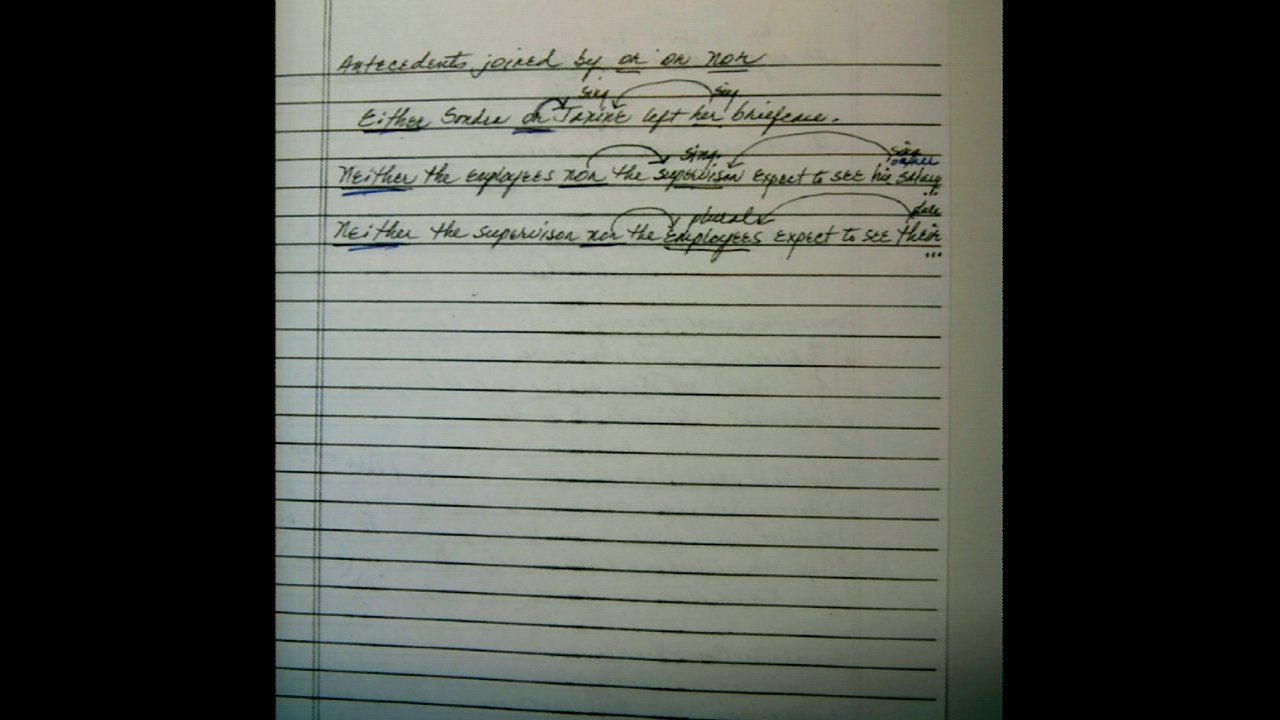 Antecedents joined by or or nor
sing. sing.
Either Sondra or Janine left her briefcase.
sing. sing.
or her
Neither the employees nor the supervisor expect to see his salary
...
plural
Neither the supervisor nor the employees expect to see their
...